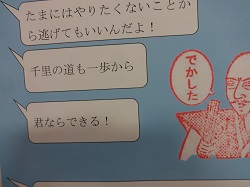 たまにはやりたくないことか
ら逃げてもいいんだよ！
千里の道も一歩から
君ならできる！
でかした